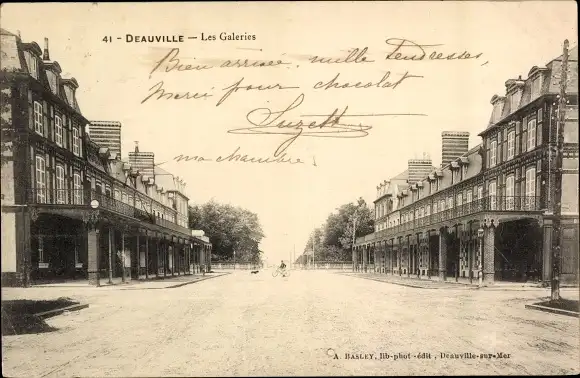 41 - DEAUVILLE — Les Galeries
Bien arrivée. mille tendresses,
Merci pour chocolat
Suzette
ma chambre
A. BASLEY, lib-phot-édit, Deauville-sur-Mer